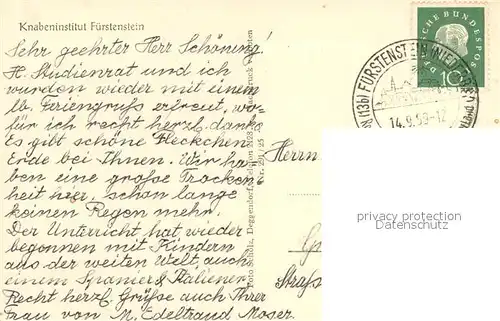 Knabeninstitut Fürstenstein
Sehr geehrter Herr Schöning!
H. Studienrat und ich
wurden wieder mit einem
lb. Feriengruß erfreut, wo-
für ich recht herzl. danke.
Es gibt schöne Fleckchen
Erde bei Ihnen. Wir ha-
ben eine große Trocken
heit hier, schon lange
keinen Regen mehr.
Der Unterricht hat wieder
begonnen mit Kindern
aus der weiten Welt, auch
einem Spanier & Italiener.
Recht herzl. Grüße auch Ihrer
Frau von M. Edeltraud Moser.
Foto Scholz, Deggendorf, Telefon
Nr. 291/25
Herrn
Straß
DEUTSCHE BUNDESPOST
10
(13b) FÜRSTENSTEIN
14.9.59-12
privacy protection
watermark